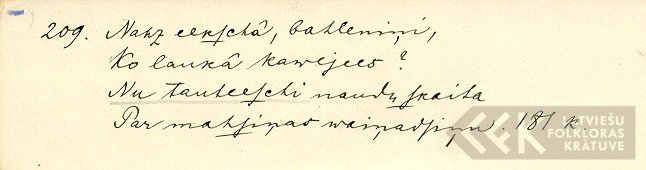 209. Nahz eekſchâ, bahleniņi,
Ko laukâ kawejees?
Nu tauteeſchi naudu ſkaita
Par mahſiņas waiņadſiņu. 181 k.
LATVIEŠU
FOLKLORAS
KRĀTUVE